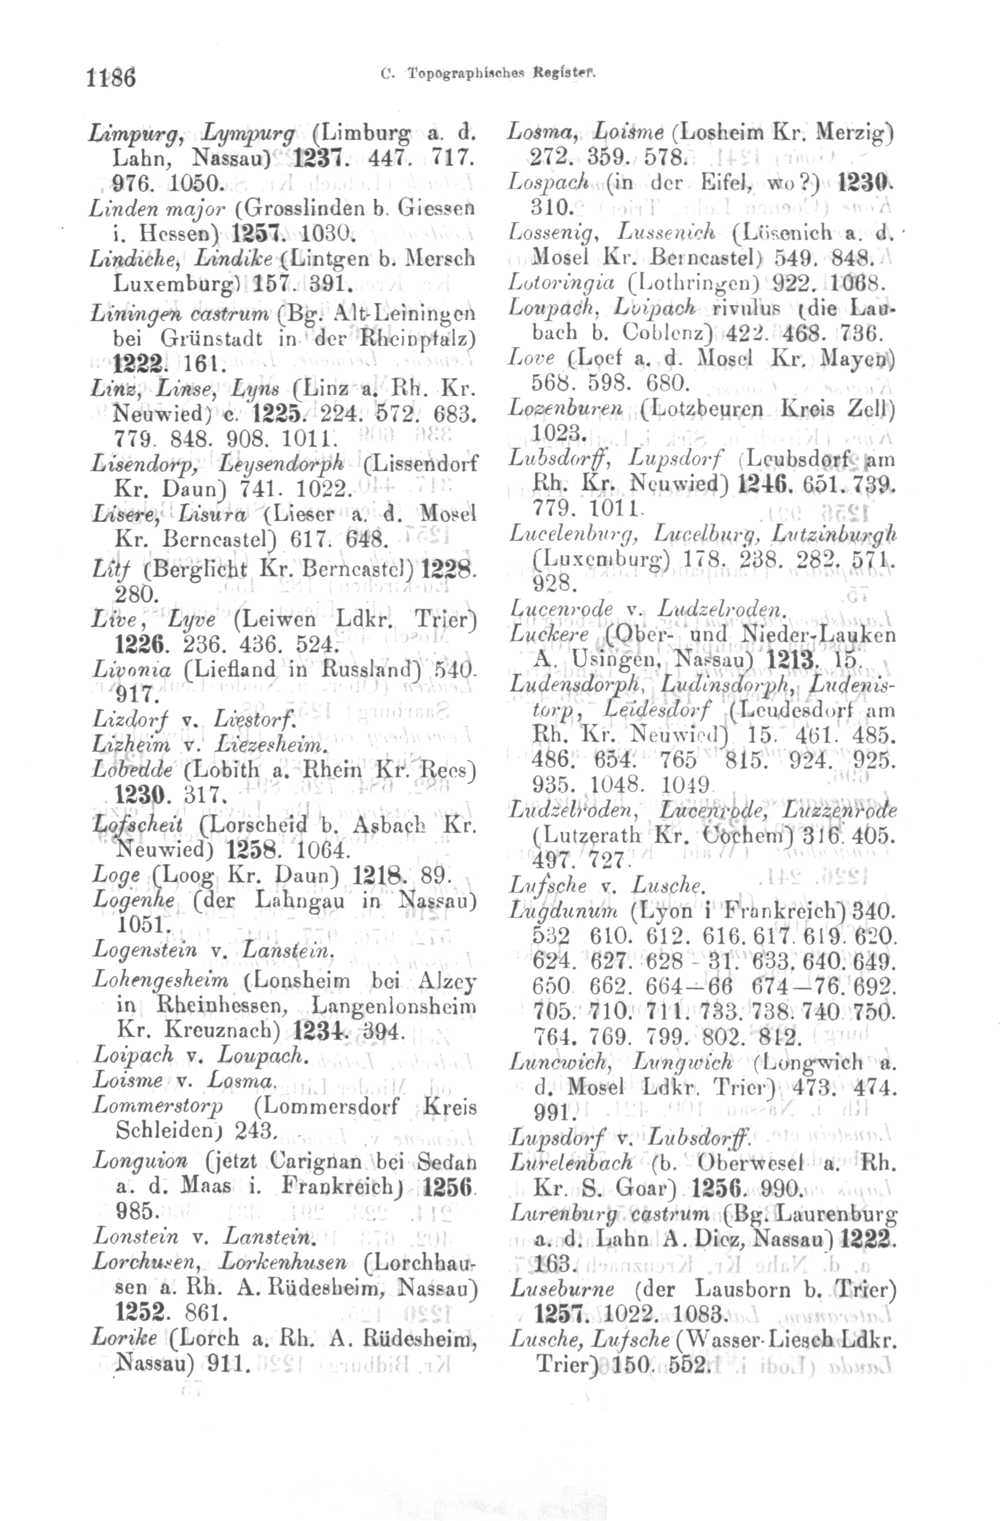 1186
C. Topographisches Register.
Limpurg, Lympurg (Limburg a. d.
Lahn, Nassau) 1237. 447. 717.
976. 1050.
Linden major (Grosslinden b. Giessen
i. Hessen) 1257. 1030.
Lindiche, Lindike (Lintgen b. Mersch
Luxemburg) 157. 391.
Liningen castrum (Bg. Alt-Leiningen
bei Grünstadt in der Rheinpfalz)
1222. 161.
Linz, Linse, Lyns (Linz a. Rh. Kr.
Neuwied) c. 1225. 224. 572. 683.
779. 848. 908. 1011.
Lisendorp, Leysendorph (Lissendorf
Kr. Daun) 741. 1022.
Lisere, Lisura (Lieser a. d. Mosel
Kr. Berncastel) 617. 648.
Litf (Berglicht Kr. Berncastel) 1228.
280.
Live, Lyve (Leiwen Ldkr. Trier)
1226. 236. 436. 524.
Livonia (Liefland in Russland) 540.
917.
Lizdorf v. Liestorf.
Lizheim v. Liezesheim.
Lobedde (Lobith a. Rhein Kr. Rees)
1230. 317.
Lofscheit (Lorscheid b. Asbach Kr.
Neuwied) 1258. 1064.
Loge (Loog Kr. Daun) 1218. 89.
Logenhe (der Lahngau in Nassau)
1051.
Logenstein v. Lanstein.
Lohengesheim (Lonsheim bei Alzey
in Rheinhessen, Langenlonsheim
Kr. Kreuznach) 1234. 394.
Loipach v. Loupach.
Loisme v. Losma.
Lommerstorp (Lommersdorf Kreis
Schleiden) 243.
Longuion (jetzt Carignan bei Sedan
a. d. Maas i. Frankreich) 1256
985.
Lonstein v. Lanstein.
Lorchusen, Lorkenhusen (Lorchhau-
sen a. Rh. A. Rüdesheim, Nassau)
1252. 861.
Lorike (Lorch a. Rh. A. Rüdesheim,
Nassau) 911.
Losma, Loisme (Losheim Kr. Merzig)
272. 359. 578.
Lospach (in der Eifel, wo?) 1230.
310.
Lossenig, Lussenich (Lösenich a. d.
Mosel Kr. Berncastel) 549. 848.
Lotoringia (Lothringen) 922. 1068.
Loupach, Loipach rivulus (die Lau-
bach b. Coblenz) 422. 468. 736.
Love (Loef a. d. Mosel Kr. Mayen)
568. 598. 680.
Lozenburen (Lotzbeuren Kreis Zell)
1023.
Lubsdorff, Lupsdorf (Leubsdorf am
Rh. Kr. Neuwied) 1246. 651. 739.
779. 1011.
Lucelenburg, Lucelburg, Lutzinburgh
(Luxemburg) 178. 238. 282. 571.
928.
Lucenrode v. Ludzelroden.
Luckere (Ober- und Nieder-Lauken
A. Usingen, Nassau) 1213. 15.
Ludensdorph, Ludinsdorph, Ludenis-
torp, Leidesdorf (Leudesdorf am
Rh. Kr. Neuwied) 15. 461. 485.
486. 654. 765 815. 924. 925.
935. 1048. 1049
Ludzelroden, Lucenrode, Luzzenrode
(Lutzerath Kr. Cochem) 316. 405.
497. 727.
Lufsche v. Lusche.
Lugdunum (Lyon i Frankreich) 340.
532 610. 612. 616. 617. 619. 620.
624. 627. 628 - 31. 633. 640. 649.
650 662. 664—66 674—76. 692.
705. 710. 711. 733. 738. 740 750.
764. 769. 799. 802. 812.
Luncwich, Lungwich (Longwich a.
d. Mosel Ldkr. Trier) 473. 474.
991.
Lupsdorf v. Lubsdorff.
Lurelenbach (b. Oberwesel a. Rh.
Kr. S. Goar) 1256. 990.
Lurenburg castrum (Bg. Laurenburg
a. d. Lahn A. Diez, Nassau) 1222.
163.
Luseburne (der Lausborn b. Trier)
1257. 1022. 1083.
Lusche, Lufsche (Wasser-Liesch Ldkr.
Trier) 150. 552.